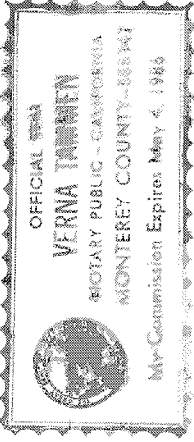 OFFICIAL SEAL
VERNA
NOTARY PUBLIC - CALIFORNIA
MONTEREY COUNTY
My Commission Expires May 4, 1986